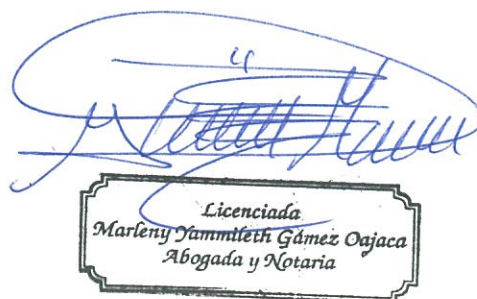 Licenciada
Marleny Yammileth Gámez Oajaca
Abogada y Notaria